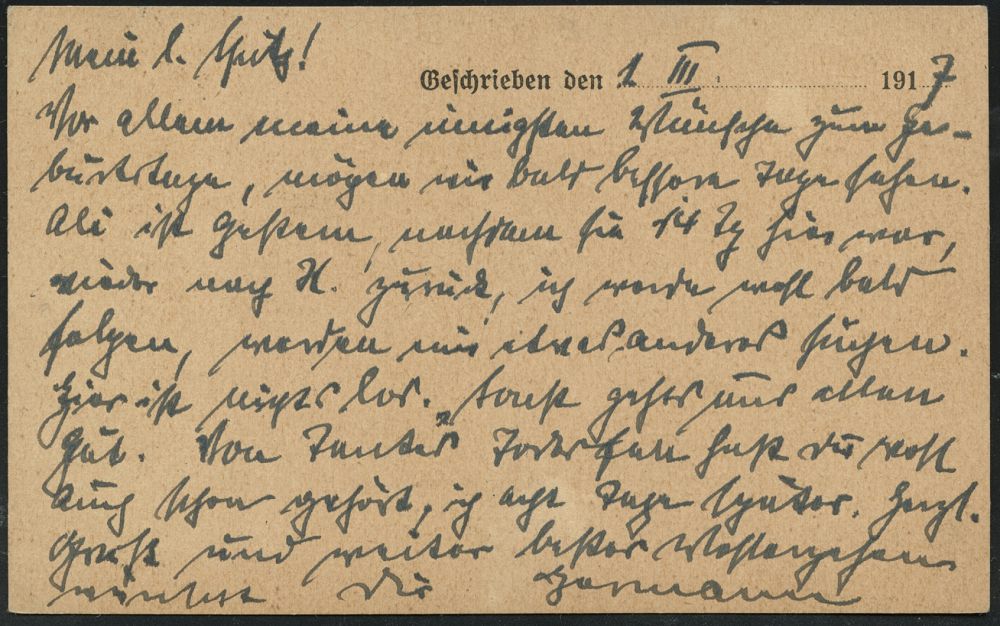 Mein l. Fritz!
Geschrieben den 1 III 1917
Vor allem meine innigsten Wünsche zum Ge-
burtstage, mögen wir bald bessere Tage sehen.
Ali ist gestern, nachdem sie 14 Tg hier war,
wieder nach H. zurück, ich werde wohl bald
folgen, werden uns etwas anderes suchen.
Hier ist nichts los. Sonst gehts uns allen
gut. Von Tantes Todesfall hast du wohl
auch schon gehört, ich acht Tage später. Herzl.
Gruß und weiter bestes Wohlergehen
wünscht Dir Hermann